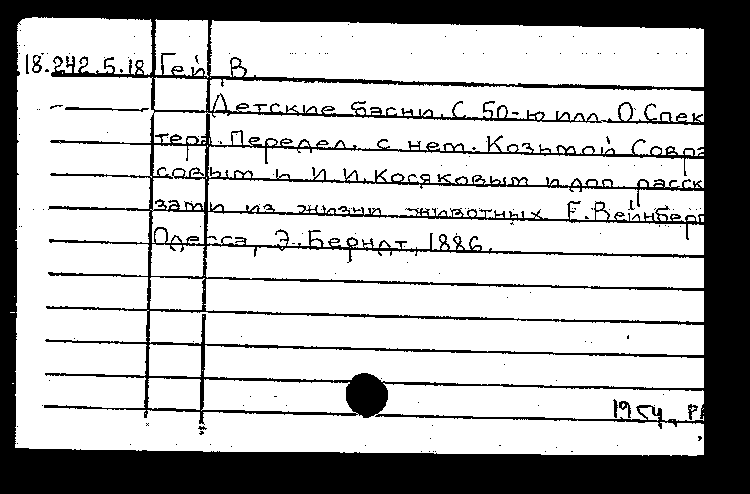 18.242.5.18 Гей В.
Детские басни. С 50-ю илл. О.Спек
тера. Передел. с нем. Козьмой Совра
совым и И.И.Косяковым и доп расск
зами из жизни животных Е.Вейнберг
Одесса, Э.Берндт, 1886.
1954